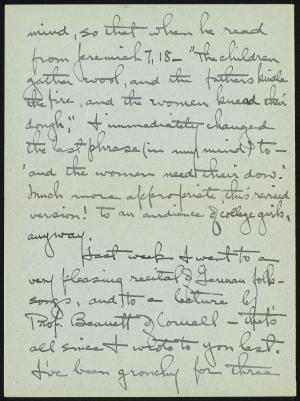 mind, so that when he read
from Jeremiah 7, 18 - "The children
gather wood, and the fathers kindle
the fire, and the women knead their
dough", I immediately changed
the last phrase (in my mind) to -
'and the women need their dow.'
Much more appropriate, this revised
version! to an audience of college girls,
anyway.
Last week I went to a
very pleasing recital of German folk-
songs, and to a lecture by
Prof. Bennett of Cornell - that's
all since I wrote to you last.
I've been grouchy for three